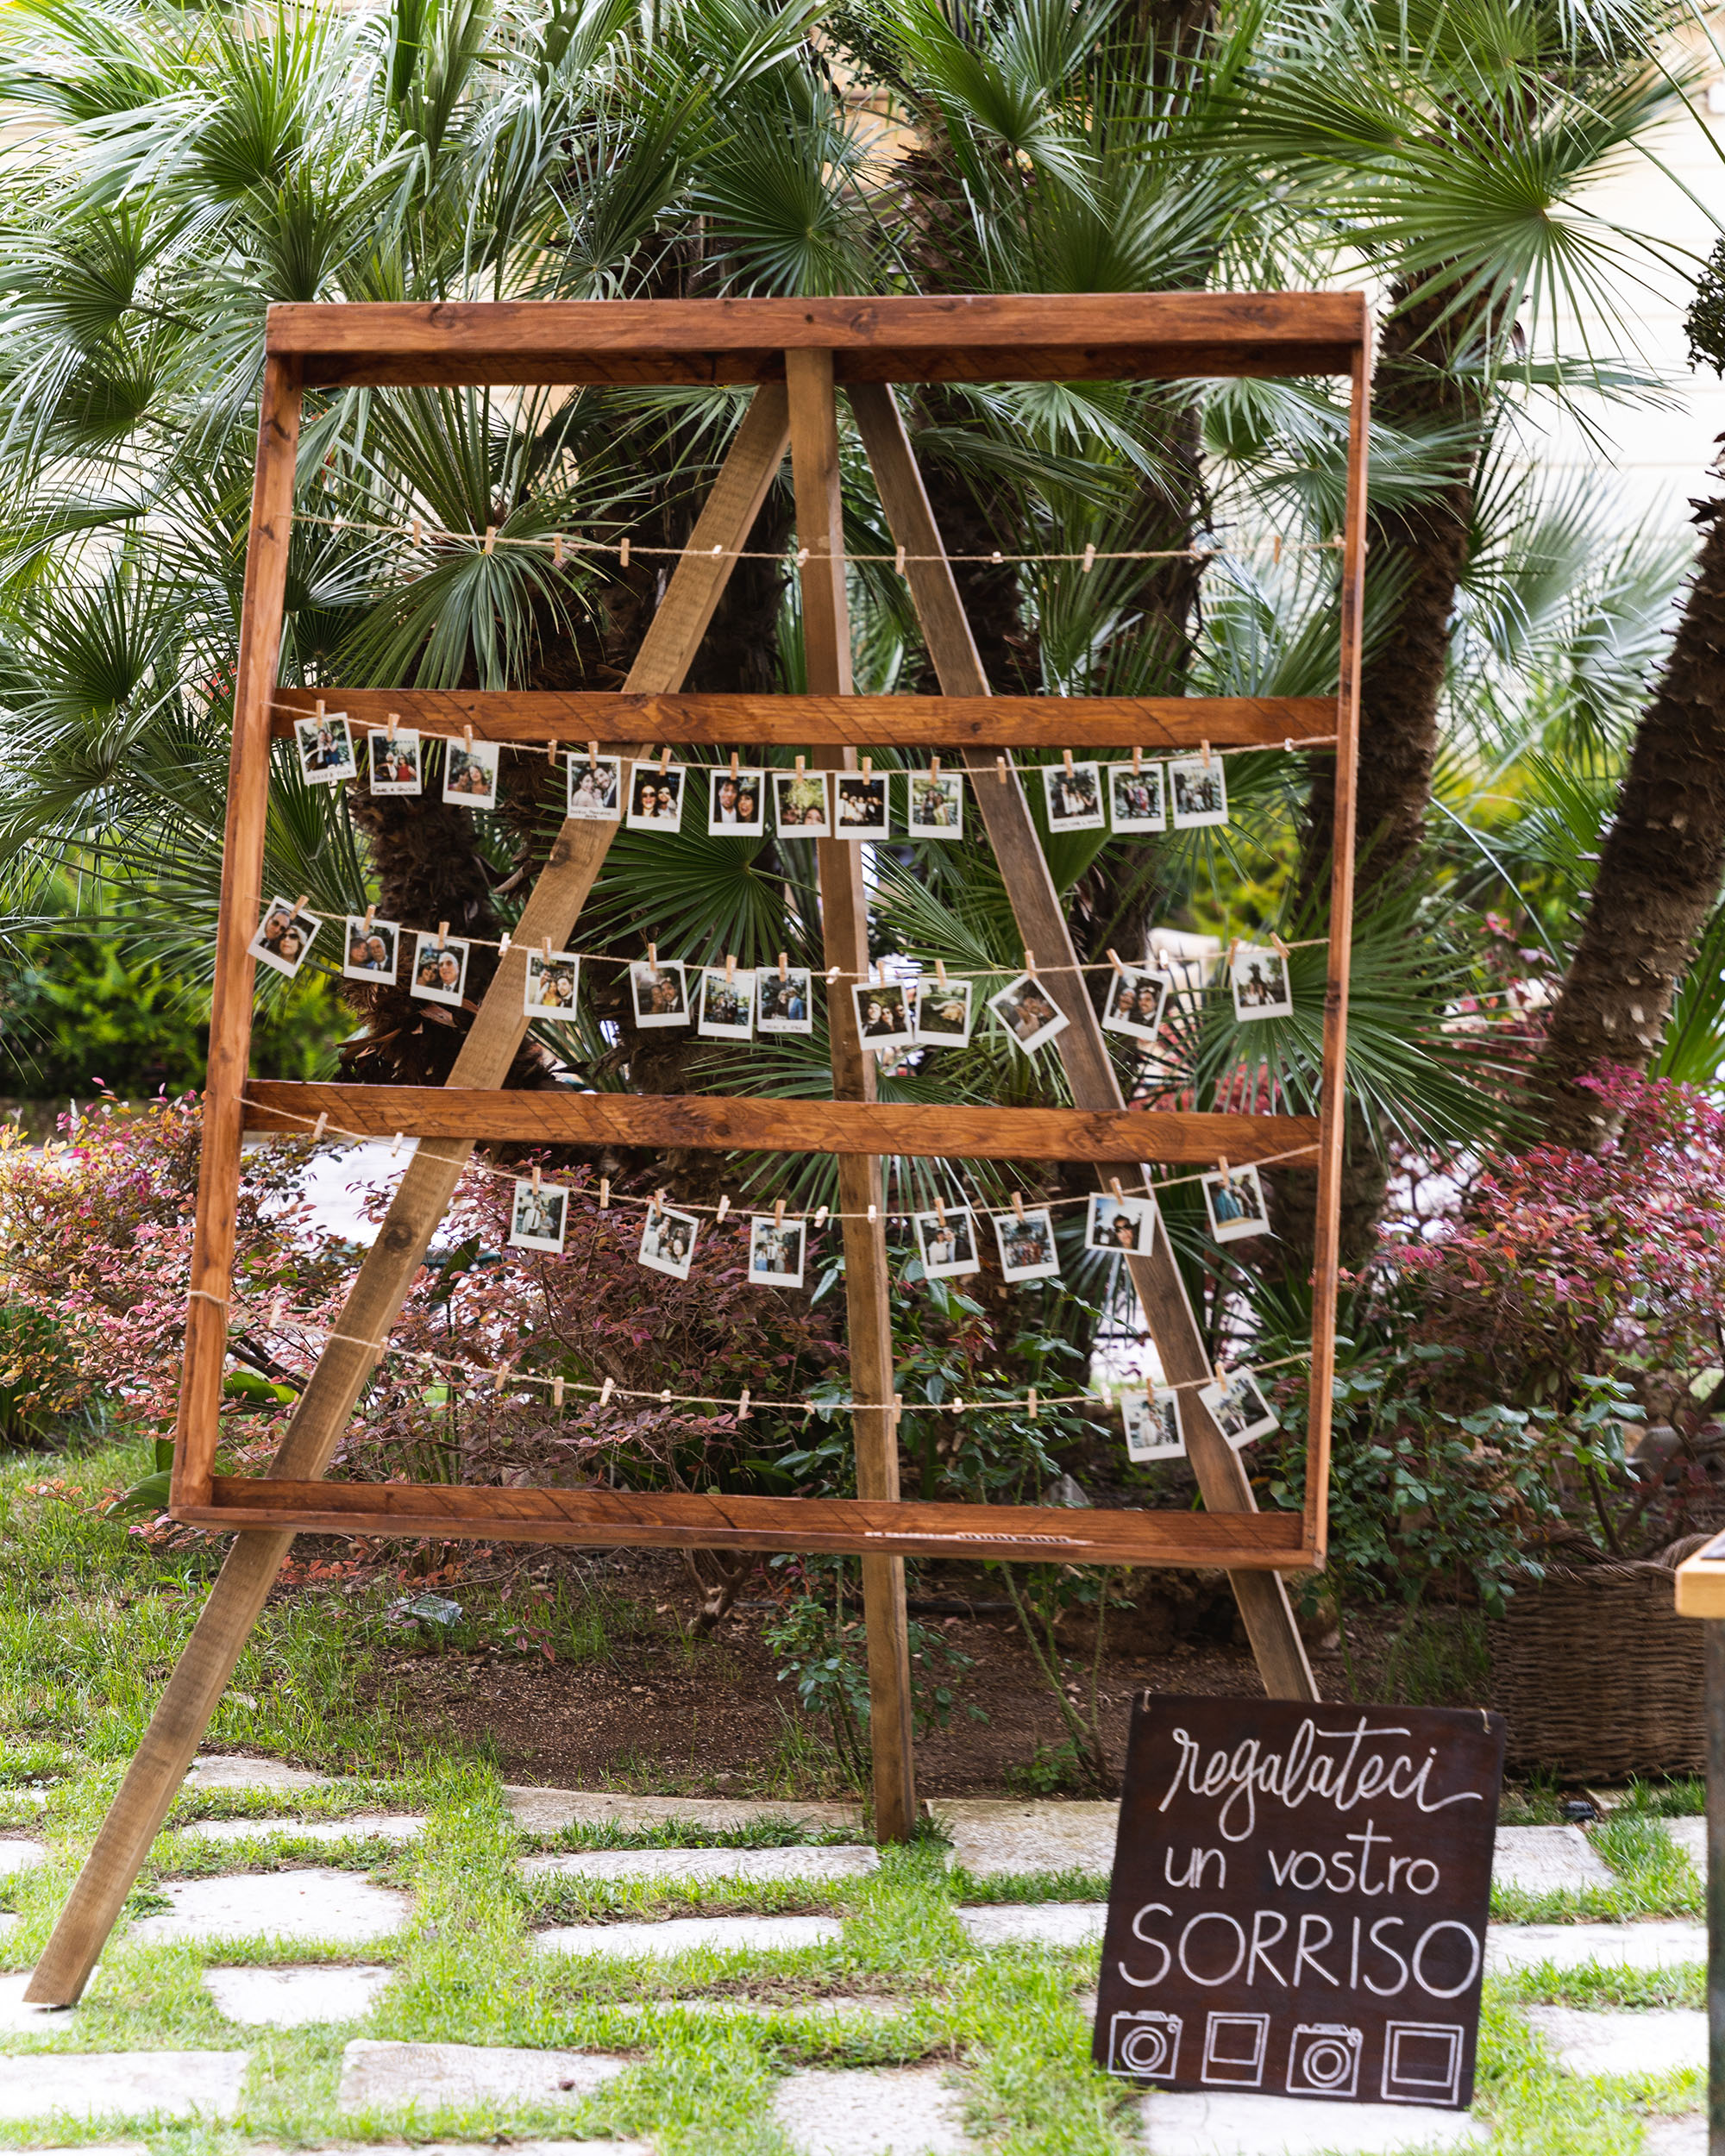 regalateci
un vostro
SORRISO